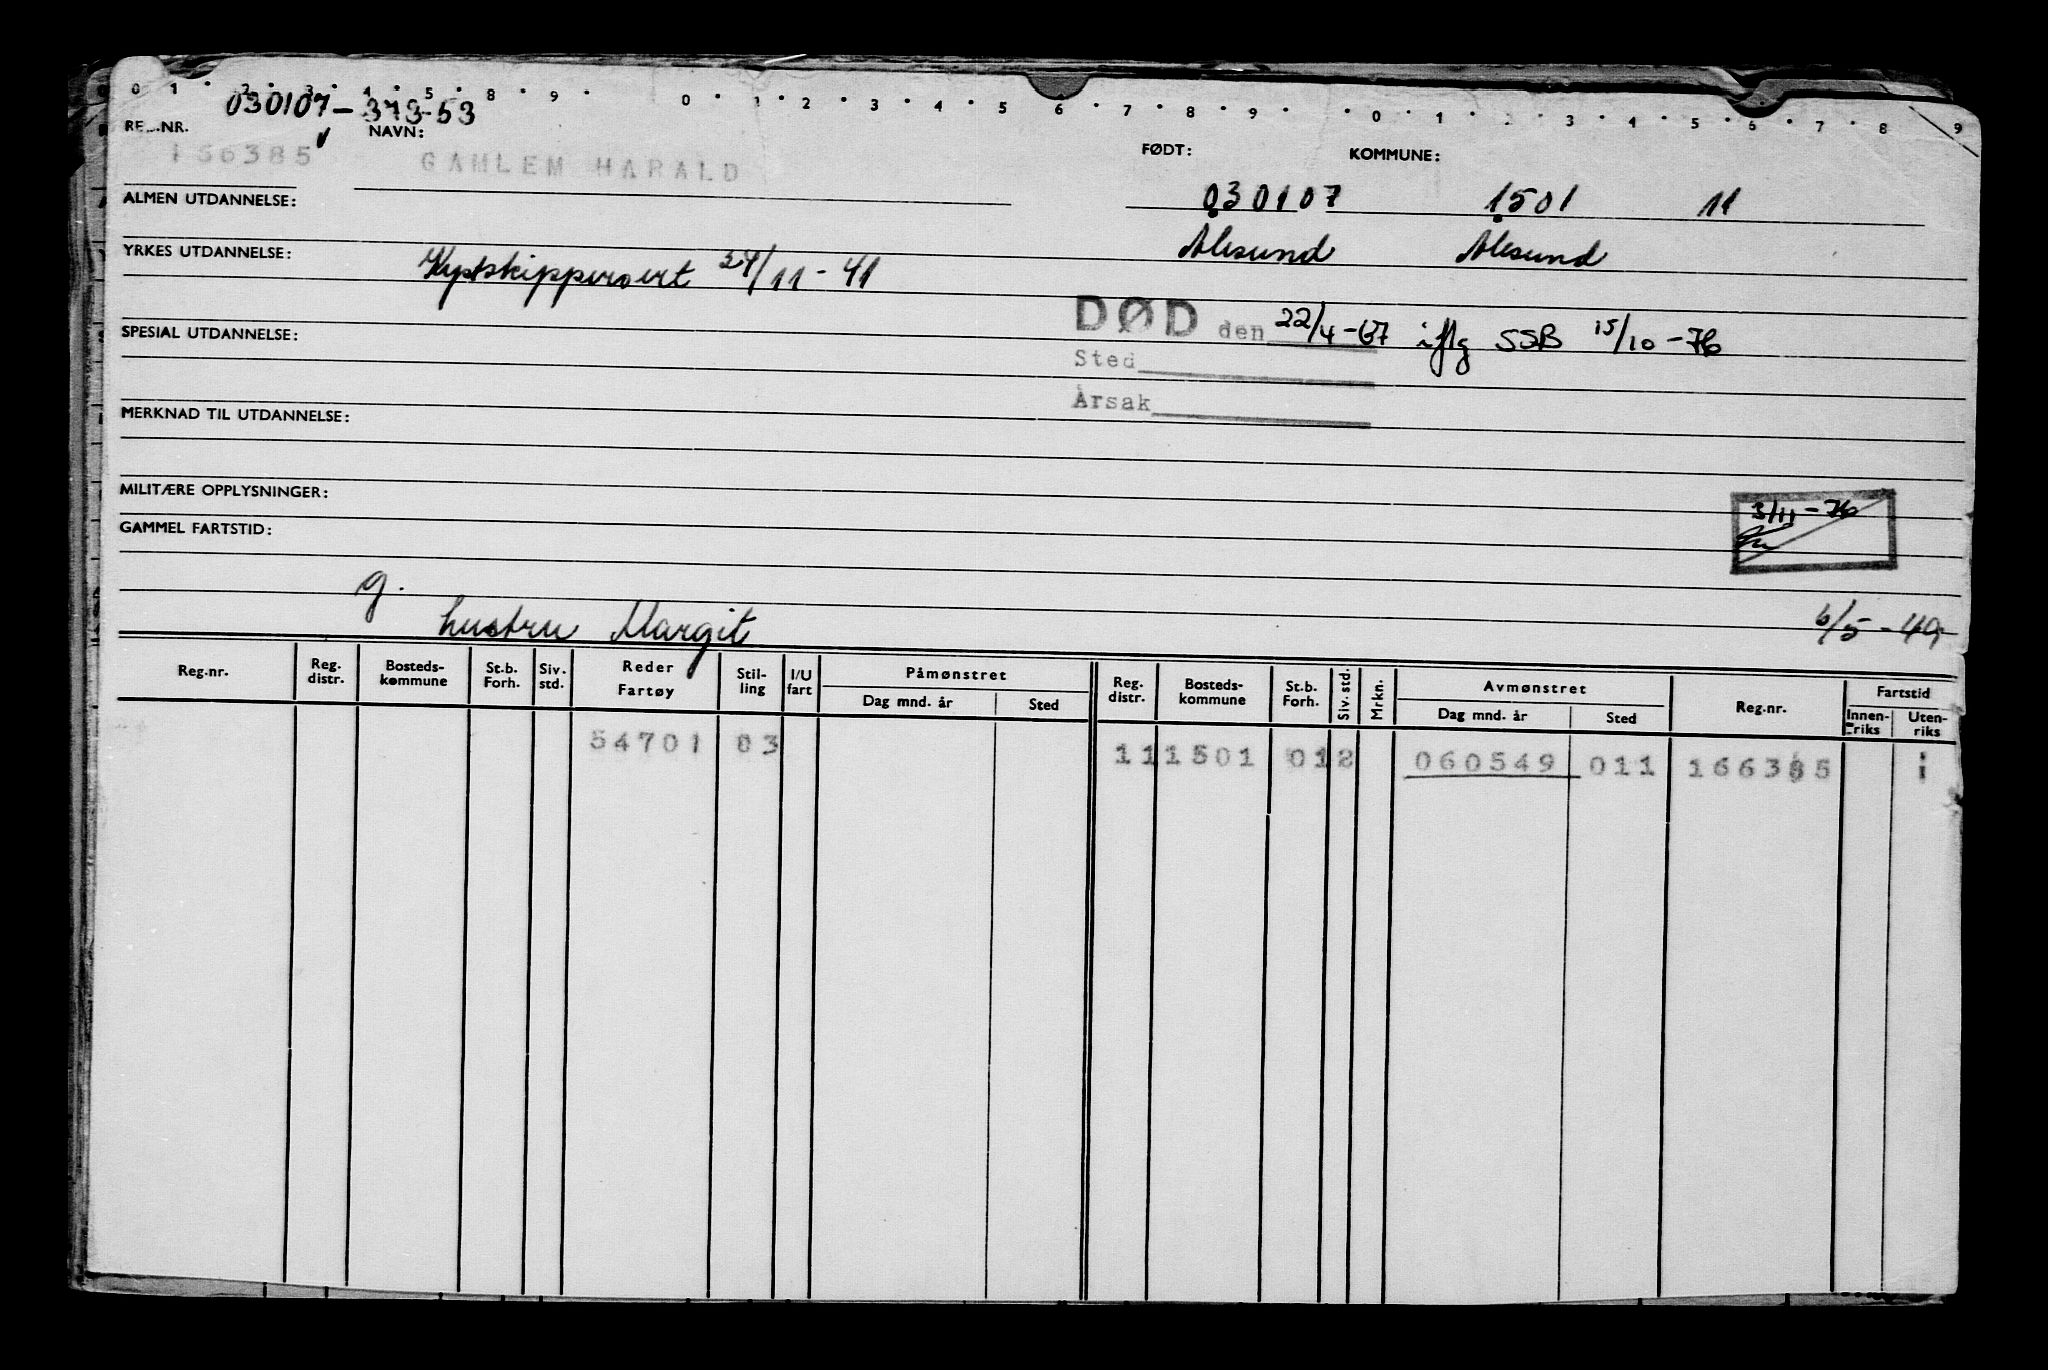 0 1 2 3 4 5 8 9 0 1 2 3 4 5 6 7 8 9 0 1 3 4 5 6 7 8 9
030107-373-53
NAVN:
166385 GAMLEM HARALD
FØDT: KOMMUNE:
030107 1501 11
ALMEN UTDANNELSE:
Ålesund Ålesund
YRKES UTDANNELSE:
Kystskippersert 24/11-41
DØD den 22/4-67 iflg SSB 15/10-76
SPESIAL UTDANNELSE:
Sted
Årsak
MERKNAD TIL UTDANNELSE:
MILITÆRE OPPLYSNINGER:
3/11-76
GAMMEL FARTSTID:
g.
hustru Margit 6/5-49
Reg.nr. Reg. distr. Bosteds-kommune St.b. Forh. Siv. std. Reder Fartøy Stil-ling I/U fart Påmønstret Dag mnd. år Sted Reg. distr. Bosteds-kommune St.b. Forh. Siv. std. Mrkn. Avmønstret Dag mnd. år Sted Reg.nr. Fartstid Innen-riks Uten-riks
54701 83 11 1501 01 2 060549 011 166385